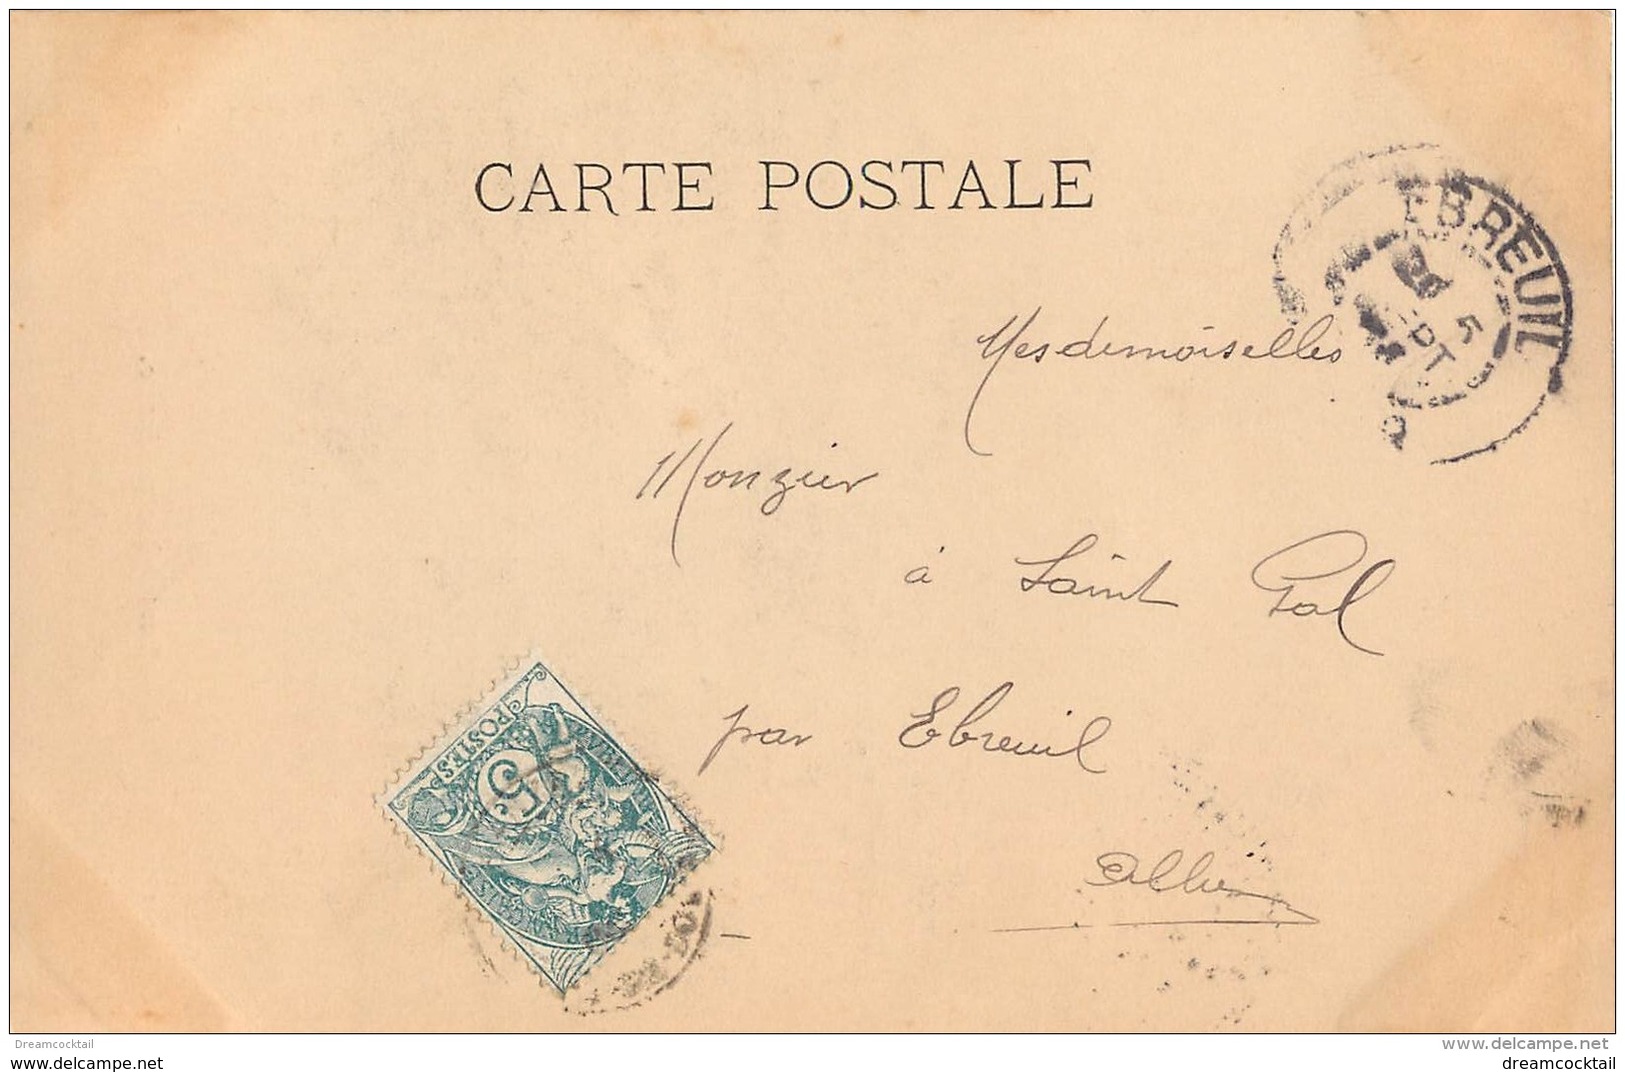 CARTE POSTALE
EBREUIL
5
SEPT
Mesdemoiselles
Monzier
à Saint Gal
par Ebreuil
Allier
POSTES
5
Dreamcocktail
www.delcampe.net
delcampe.net
dreamcocktail